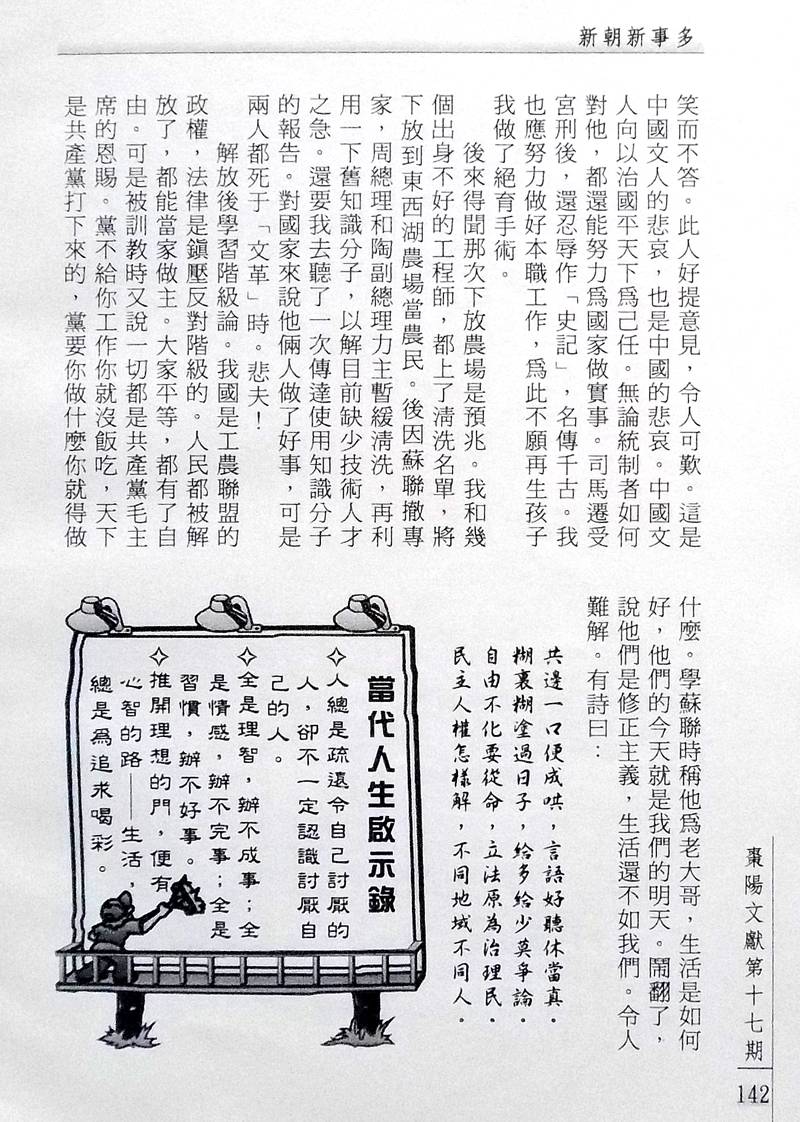 新朝新事多
笑而不答。此人好提意見，令人可歎。這是
中國文人的悲哀，也是中國的悲哀。中國文
人向以治國平天下爲己任。無論統制者如何
對他，都還能努力爲國家做實事。司馬遷受
宮刑後，還忍辱作「史記」，名傳千古。我
也應努力做好本職工作，爲此不願再生孩子
我做了絕育手術。
後來得聞那次下放農場是預兆。我和幾
個出身不好的工程師，都上了清洗名單，將
下放到東西湖農場當農民。後因蘇聯撤專
家，周總理和陶副總理力主暫緩清洗，再利
用一下舊知識分子，以解目前缺少技術人才
之急。還要我去聽了一次傳達使用知識分子
的報告。對國家來說他倆人做了好事，可是
兩人都死于「文革」時。悲夫！
解放後學習階級論。我國是工農聯盟的
政權，法律是鎭壓反對階級的。人民都被解
放了，都能當家做主。大家平等，都有了自
由。可是被訓教時又說一切都是共產黨毛主
席的恩賜。黨不給你工作你就沒飯吃，天下
是共產黨打下來的，黨要你做什麼你就得做
什麼。學蘇聯時稱他爲老大哥，生活是如何
好，他們的今天就是我們的明天。鬧翻了，
說他們是修正主義，生活還不如我們。令人
難解。有詩曰：
共邊一口便成哄，言語好聽休當真。
糊裏糊塗過日子，給多給少莫爭論。
自由不化要從命，立法原為治理民。
民主人權怎樣解，不同地域不同人。
當代人生啟示錄
✧人總是疏遠令自己討厭的
人，卻不一定認識討厭自
己的人。
✧全是理智，辦不成事；全
是情感，辦不完事；全是
習慣，辦不好事。
✧推開理想的門，便有
心智的路──生活，
總是爲追求喝彩。
棗陽文獻第十七期
142